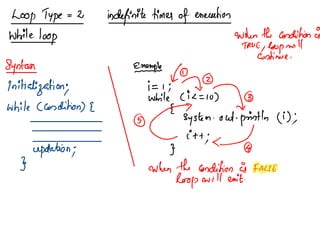 Loop Type = 2 indefinite times of execution
While loop
When the condition is
TRUE, loop will
continue.
Syntax
Initialization;
While (Condition) {
updation;
}
Example
i=1;
while (i<=10)
{
System.out.println (i);
i++;
}
1
2
3
4
5
When the condition is FALSE
loop will exit.